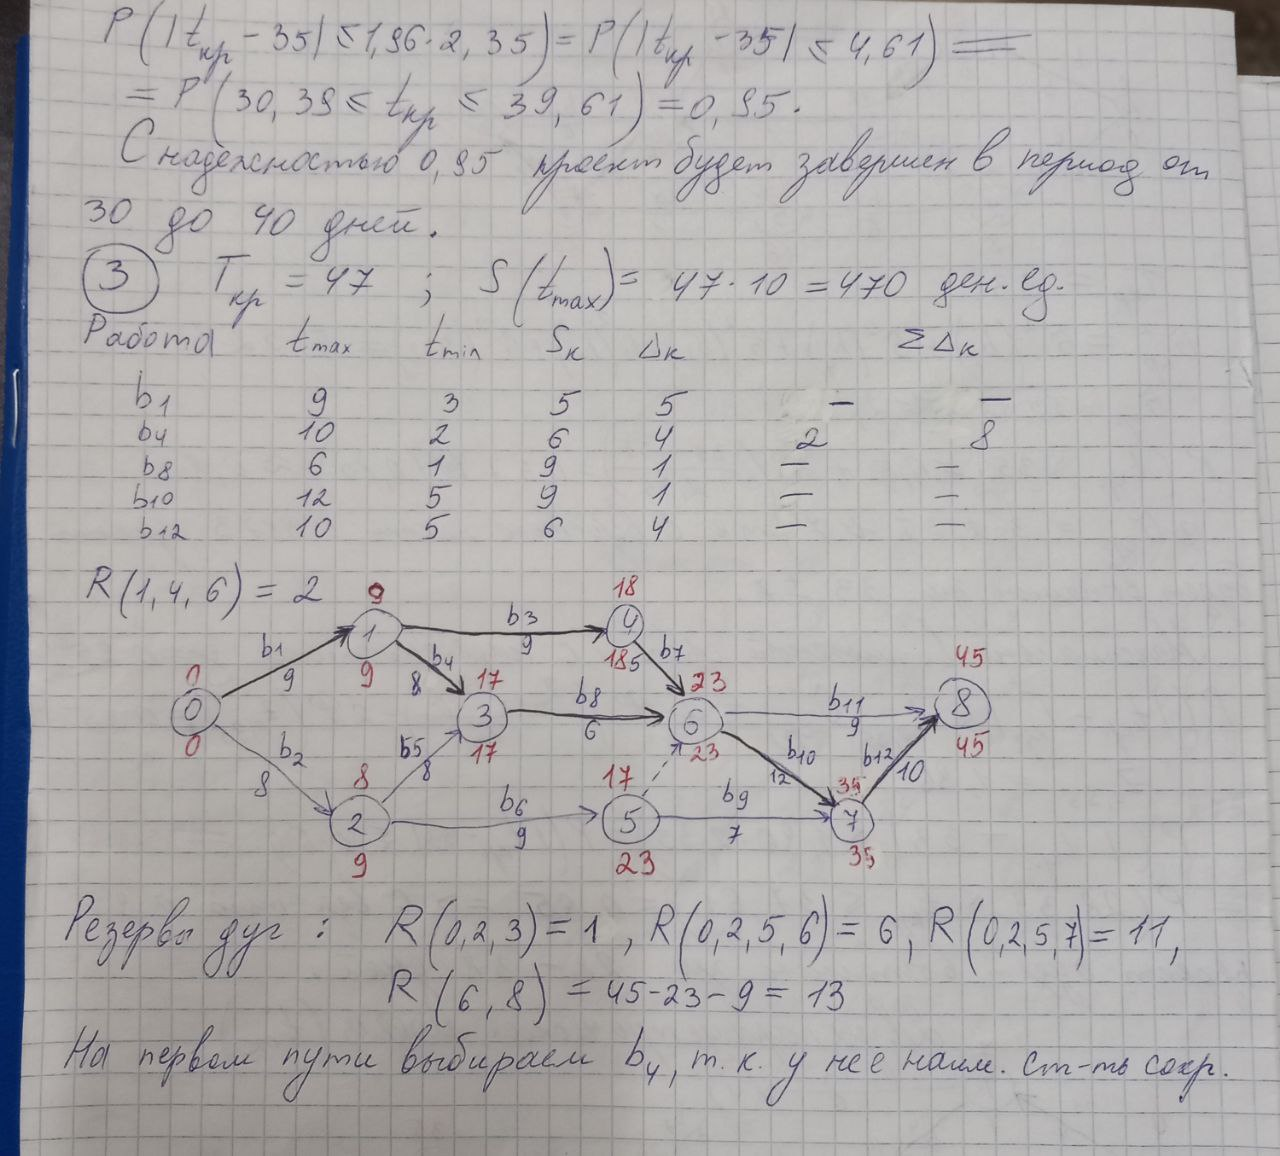 P(|tкр - 35| ≤ 1,96·2,35) = P(|tкр - 35| ≤ 4,61) =
= P(30,39 ≤ tкр ≤ 39,61) = 0,95.
С надежностью 0,95 проект будет завершен в период от
30 до 40 дней.
3 Tкр = 47 ; S(tmax) = 47·10 = 470 ден.ед.
Работа tmax tmin Sк Δк ΣΔк
b1 9 3 5 5 — —
b4 10 2 6 4 2 8
b8 6 1 9 1 — —
b10 12 5 9 1 — —
b12 10 5 6 4 — —
R(1,4,6) = 2
9 18
b1 9 1 b3 9 4 b7 5
0 9 b4 8 17 18 23 45
0 3 b8 6 6 b11 9 8
0 b2 8 b5 8 17 23 b10 12 b12 10 45
8 17 35
2 b6 9 5 b9 7 7
9 23 35
Резервы дуг : R(0,2,3) = 1 , R(0,2,5,6) = 6, R(0,2,5,7) = 11,
R(6,8) = 45-23-9 = 13
На первом пути выбираем b4, т.к. у нее наим. ст-ть сокр.